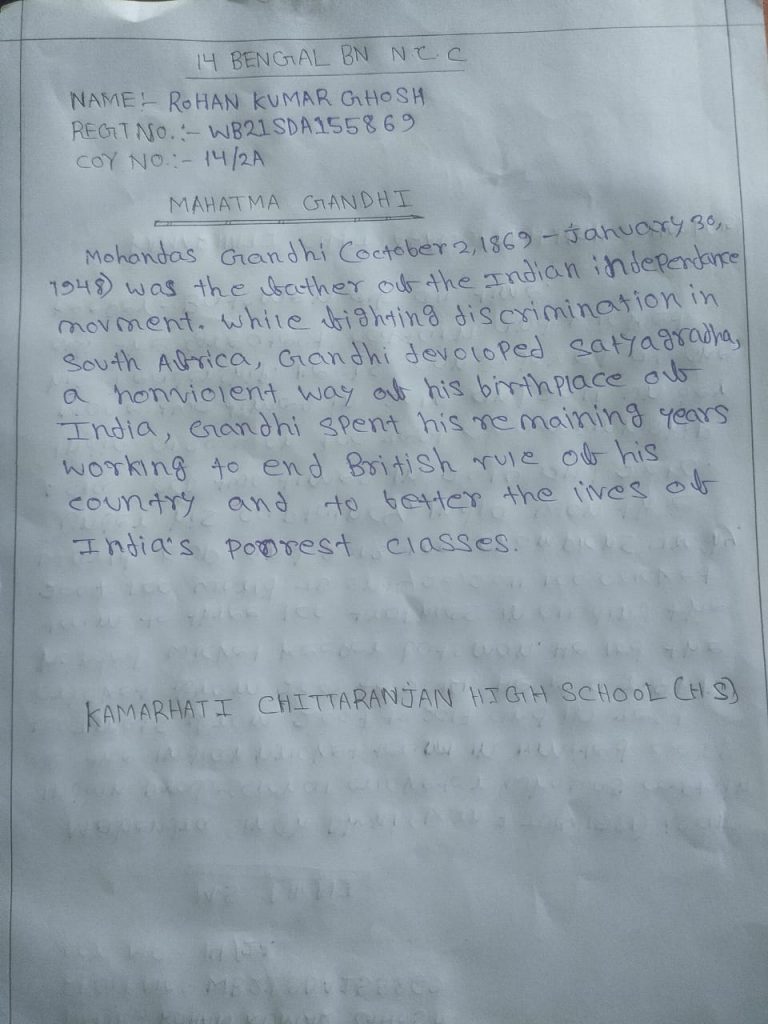 14 BENGAL BN N C C
NAME:- ROHAN KUMAR GHOSH
REGT NO.:- WB21SDA155869
COY NO.:- 14/2A
MAHATMA GANDHI
Mohandas Gandhi (october 2, 1869 - January 30,
1948) was the father of the Indian independance
movment. while fighting discrimination in
South Africa, Gandhi devoloped satyagradha,
a nonviolent way of his birthplace of
India, Gandhi spent his remaining years
working to end British rule of his
country and to better the lives of
India's poorest classes.
KAMARHATI CHITTARANJAN HIGH SCHOOL (H S)